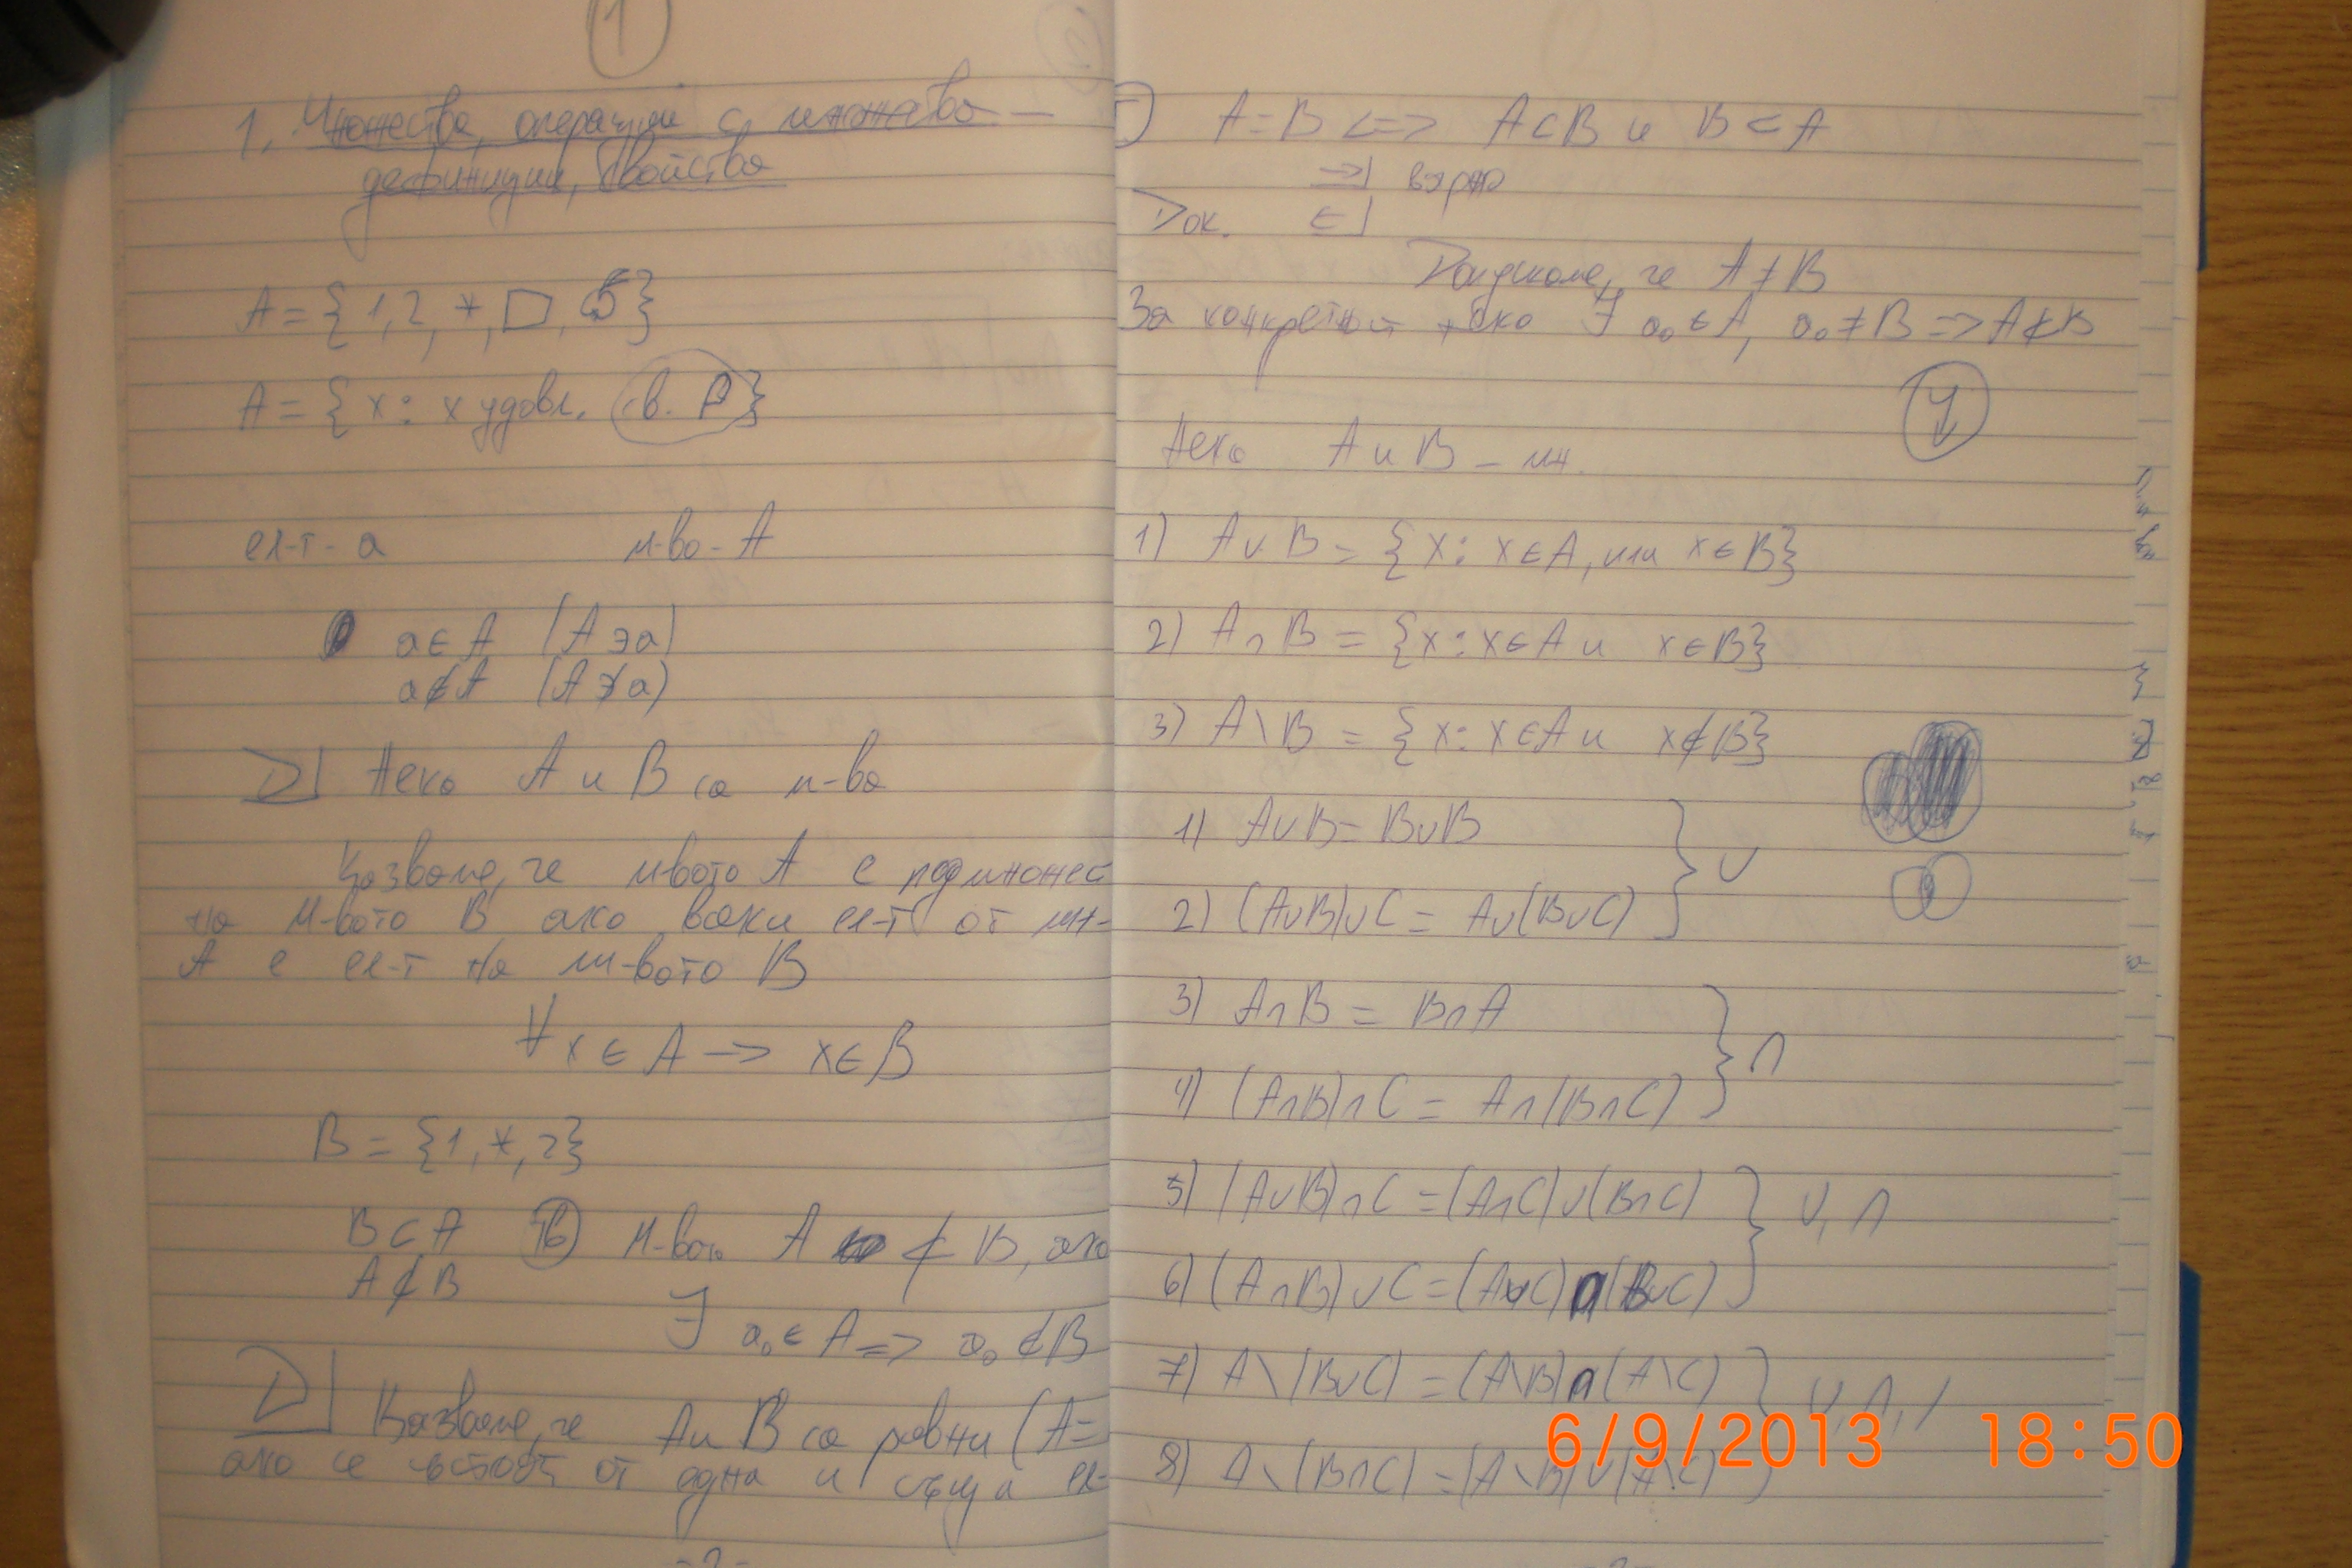 1
1. Множества, операции с множества —
дефиниции, свойства
A = {1, 2, *, □, 5}
A = {x : x удовл. св. P}
ел-т - a м-во - A
a ∈ A (A ∋ a)
a ∉ A (A ∌ a)
D| Нека A и B са м-ва
Казваме, че м-вото A е подмножес
на м-вото B ако всеки ел-т от мн-
A е ел-т на м-вото B
∀ x ∈ A → x ∈ B
B = {1, *, 2}
B ⊂ A Тв М-вото A ⊄ B, ако
A ⊄ B
∃ a₀ ∈ A => a₀ ∉ B
D| Казваме, че A и B са равни (A =
ако се състоят от една и съща ел-
A = B <=> A ⊂ B и B ⊂ A
=>| вярно
Док. <=|
Допускаме, че A ≠ B
За конкретност ако ∃ a₀ ∈ A, a₀ ≠ B => A ⊄ B
Нека A и B – мн.
1) A ∪ B = {x : x ∈ A, или x ∈ B}
2) A ∩ B = {x : x ∈ A и x ∈ B}
3) A \ B = {x : x ∈ A и x ∉ B}
1) A ∪ B = B ∪ B
2) (A ∪ B) ∪ C = A ∪ (B ∪ C) } ∪
3) A ∩ B = B ∩ A
4) (A ∩ B) ∩ C = A ∩ (B ∩ C) } ∩
5) (A ∪ B) ∩ C = (A ∩ C) ∪ (B ∩ C) } ∪, ∩
6) (A ∩ B) ∪ C = (A ∪ C) ∩ (B ∪ C)
7) A \ (B ∪ C) = (A \ B) ∩ (A \ C) } ∪, ∩, \
8) A \ (B ∩ C) = (A \ B) ∪ (A \ C)
6/9/2013 18:50